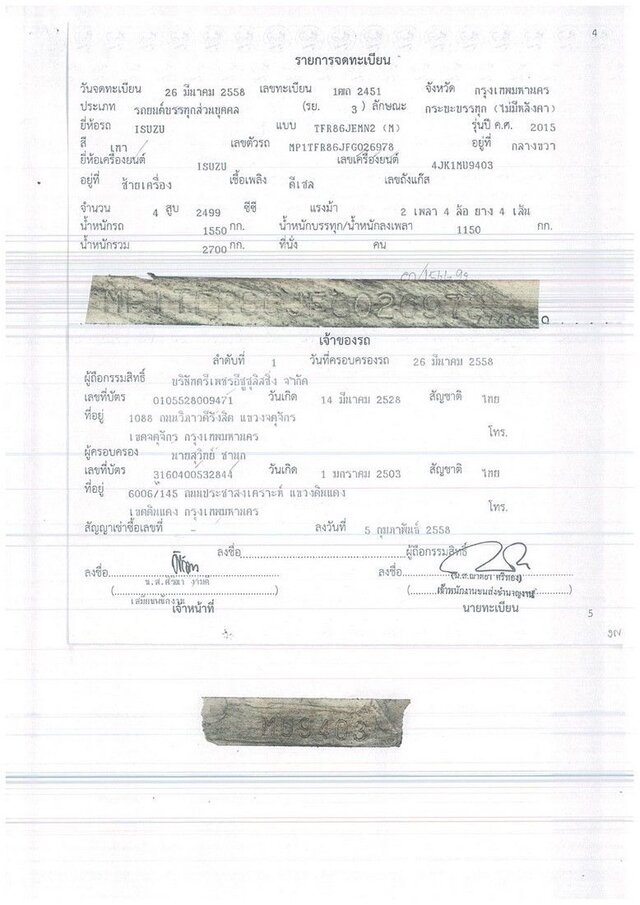 4
รายการจดทะเบียน
วันจดทะเบียน 26 มีนาคม 2558 เลขทะเบียน 1ฒถ 2451 จังหวัด กรุงเทพมหานคร
ประเภท รถยนต์บรรทุกส่วนบุคคล (รย. 3) ลักษณะ กระบะบรรทุก (ไม่มีหลังคา)
ยี่ห้อรถ ISUZU แบบ TFR86JEMN2 (M) รุ่นปี ค.ศ. 2015
สี เทา เลขตัวรถ MP1TFR86JFG026978 อยู่ที่ กลางขวา
ยี่ห้อเครื่องยนต์ ISUZU เลขเครื่องยนต์ 4JK1MU9403
อยู่ที่ ซ้ายเครื่อง เชื้อเพลิง ดีเซล เลขถังแก๊ส
จำนวน 4 สูบ 2499 ซีซี แรงม้า 2 เพลา 4 ล้อ ยาง 4 เส้น
น้ำหนักรถ 1550 กก. น้ำหนักบรรทุก/น้ำหนักลงเพลา 1150 กก.
น้ำหนักรวม 2700 กก. ที่นั่ง คน
เจ้าของรถ
ลำดับที่ 1 วันที่ครอบครองรถ 26 มีนาคม 2558
ผู้ถือกรรมสิทธิ์ บริษัทตรีเพชรอีซูซุลิสซิ่ง จำกัด
เลขที่บัตร 0105528009471 วันเกิด 14 มีนาคม 2528 สัญชาติ ไทย
ที่อยู่ 1088 ถนนวิภาวดีรังสิต แขวงจตุจักร
เขตจตุจักร กรุงเทพมหานคร โทร.
ผู้ครอบครอง นายสุวิทย์
เลขที่บัตร 3160400532844 วันเกิด 1 มกราคม 2503 สัญชาติ ไทย
ที่อยู่ 6006/145 ถนนประชาสงเคราะห์ แขวงดินแดง
เขตดินแดง กรุงเทพมหานคร โทร.
สัญญาเช่าซื้อเลขที่ - ลงวันที่ 5 กุมภาพันธ์ 2558
ลงชื่อ ผู้ถือกรรมสิทธิ์
ลงชื่อ ลงชื่อ
เจ้าพนักงานขนส่งชำนาญงาน
เจ้าหน้าที่ นายทะเบียน
5
MU9403